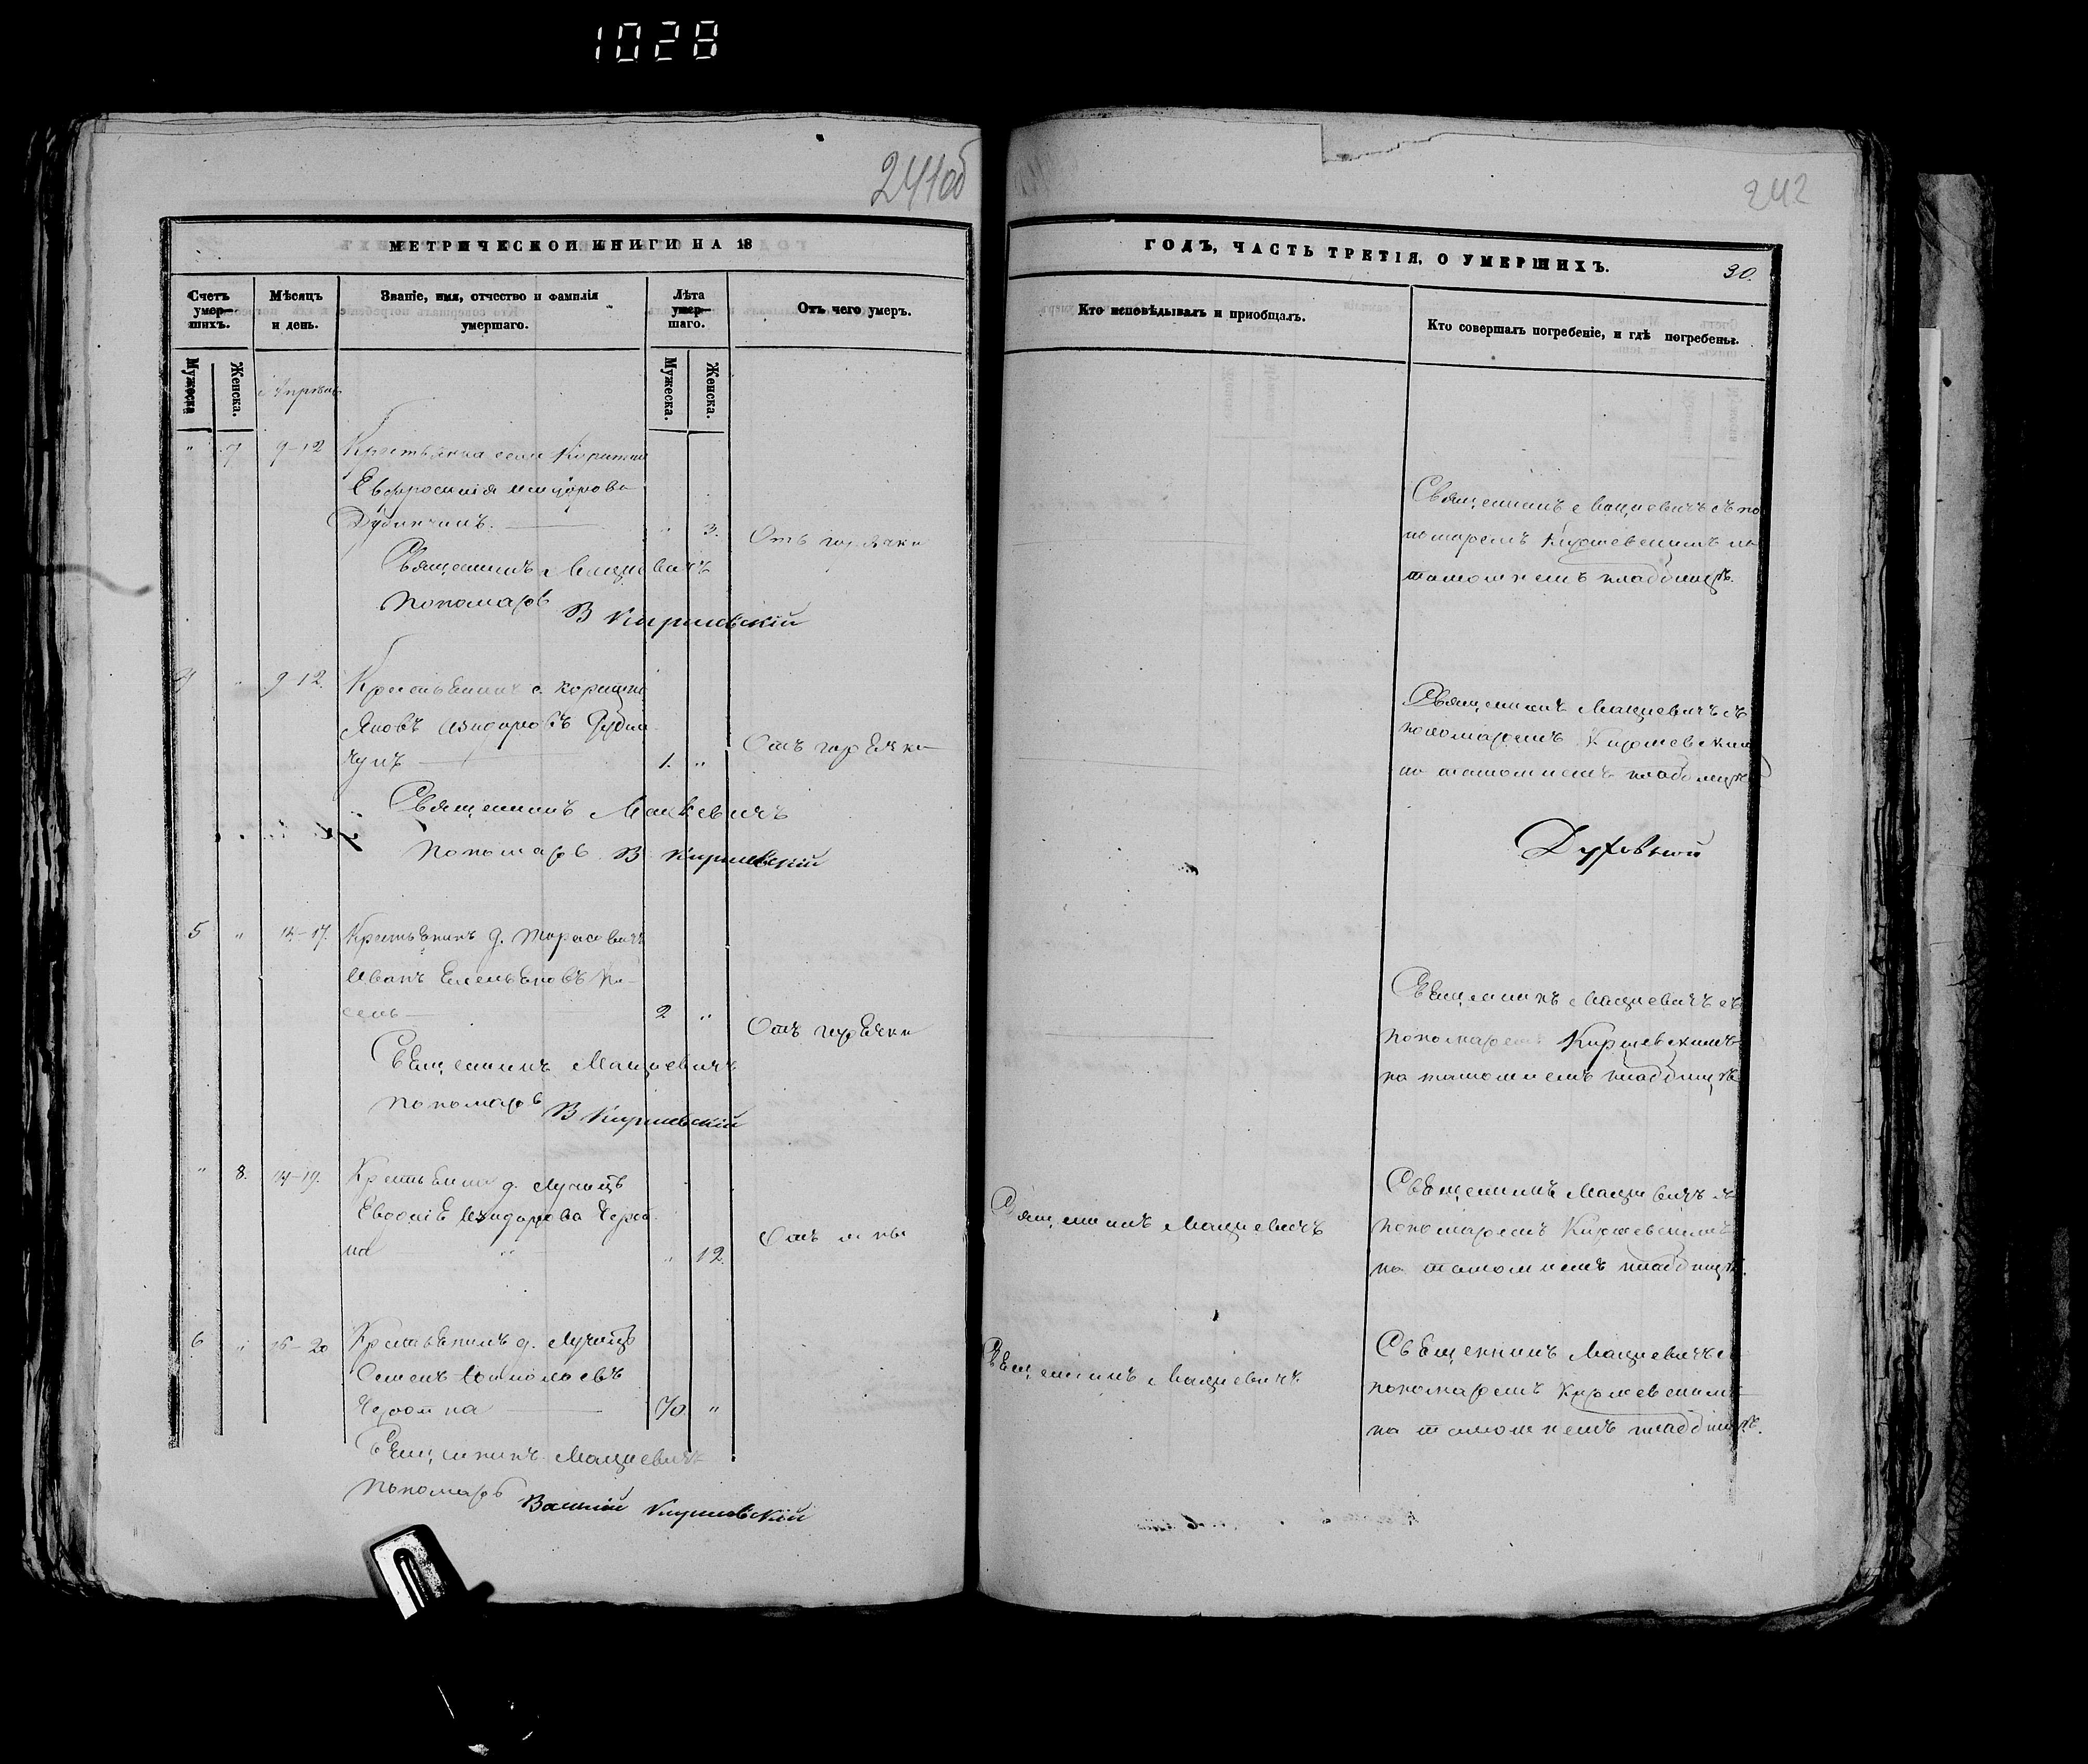 1028
241об
242
МЕТРИЧЕСКОЙ КНИГИ НА 18
ГОДЪ, ЧАСТЬ ТРЕТІЯ, О УМЕРШИХЪ.
30.
Счетъ умер-шихъ.
Мѣсяцъ и день.
Званіе, имя, отчество и фамилія умершаго.
Лѣта умер-шаго.
Отъ чего умеръ.
Кто исповѣдывалъ и пріобщалъ.
Кто совершалъ погребеніе, и гдѣ погребены.
Мужеска
Женска.
Мужеска.
Женска.
Апрѣль
" 7 9-12 Крестьянка села
Евфросинія
" 3.
Отъ горячки
Священникъ Мацкевичъ
Пономарь В Киршевскій
Священникъ Мацкевичъ съ по
номаремъ Киршевскимъ на
тамошнемъ кладбищѣ.
4 " 9-12. Крестьянинъ с.
Яковъ Изидоровъ
чукъ 1. "
Отъ горячки
Священникъ Мацкевичъ
Пономарь В. Киршевскій
Священникъ Мацкевичъ съ
пономаремъ Киршевскимъ
на тамошнемъ кладбищѣ
Духовной
5 " 14-17. Крестьянинъ д.
Иванъ Емельяновъ Ки-
сель 2 "
Отъ горячки
Священникъ Мацкевичъ
Пономарь В Киршевскій
Священникъ Мацкевичъ съ
пономаремъ Киршевскимъ
на тамошнемъ кладбищѣ
" 8. 14-19. Крестьянка д.
Евдокія Изидорова
на " 12.
Отъ
Священникъ Мацкевичъ
Священникъ Мацкевичъ съ
пономаремъ Киршевскимъ
на тамошнемъ кладбищѣ.
6 " 16-20 Крестьянинъ д.
Семенъ
70 "
Священникъ Мацкевичъ
Пономарь Василій Киршевскій
Священникъ Мацкевичъ
Священникъ Мацкевичъ съ
пономаремъ Киршевскимъ
на тамошнемъ кладбищѣ.